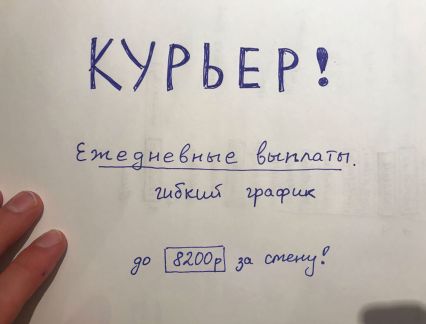 КУРЬЕР!
Ежедневные выплаты.
гибкий график
до 8200р за смену!